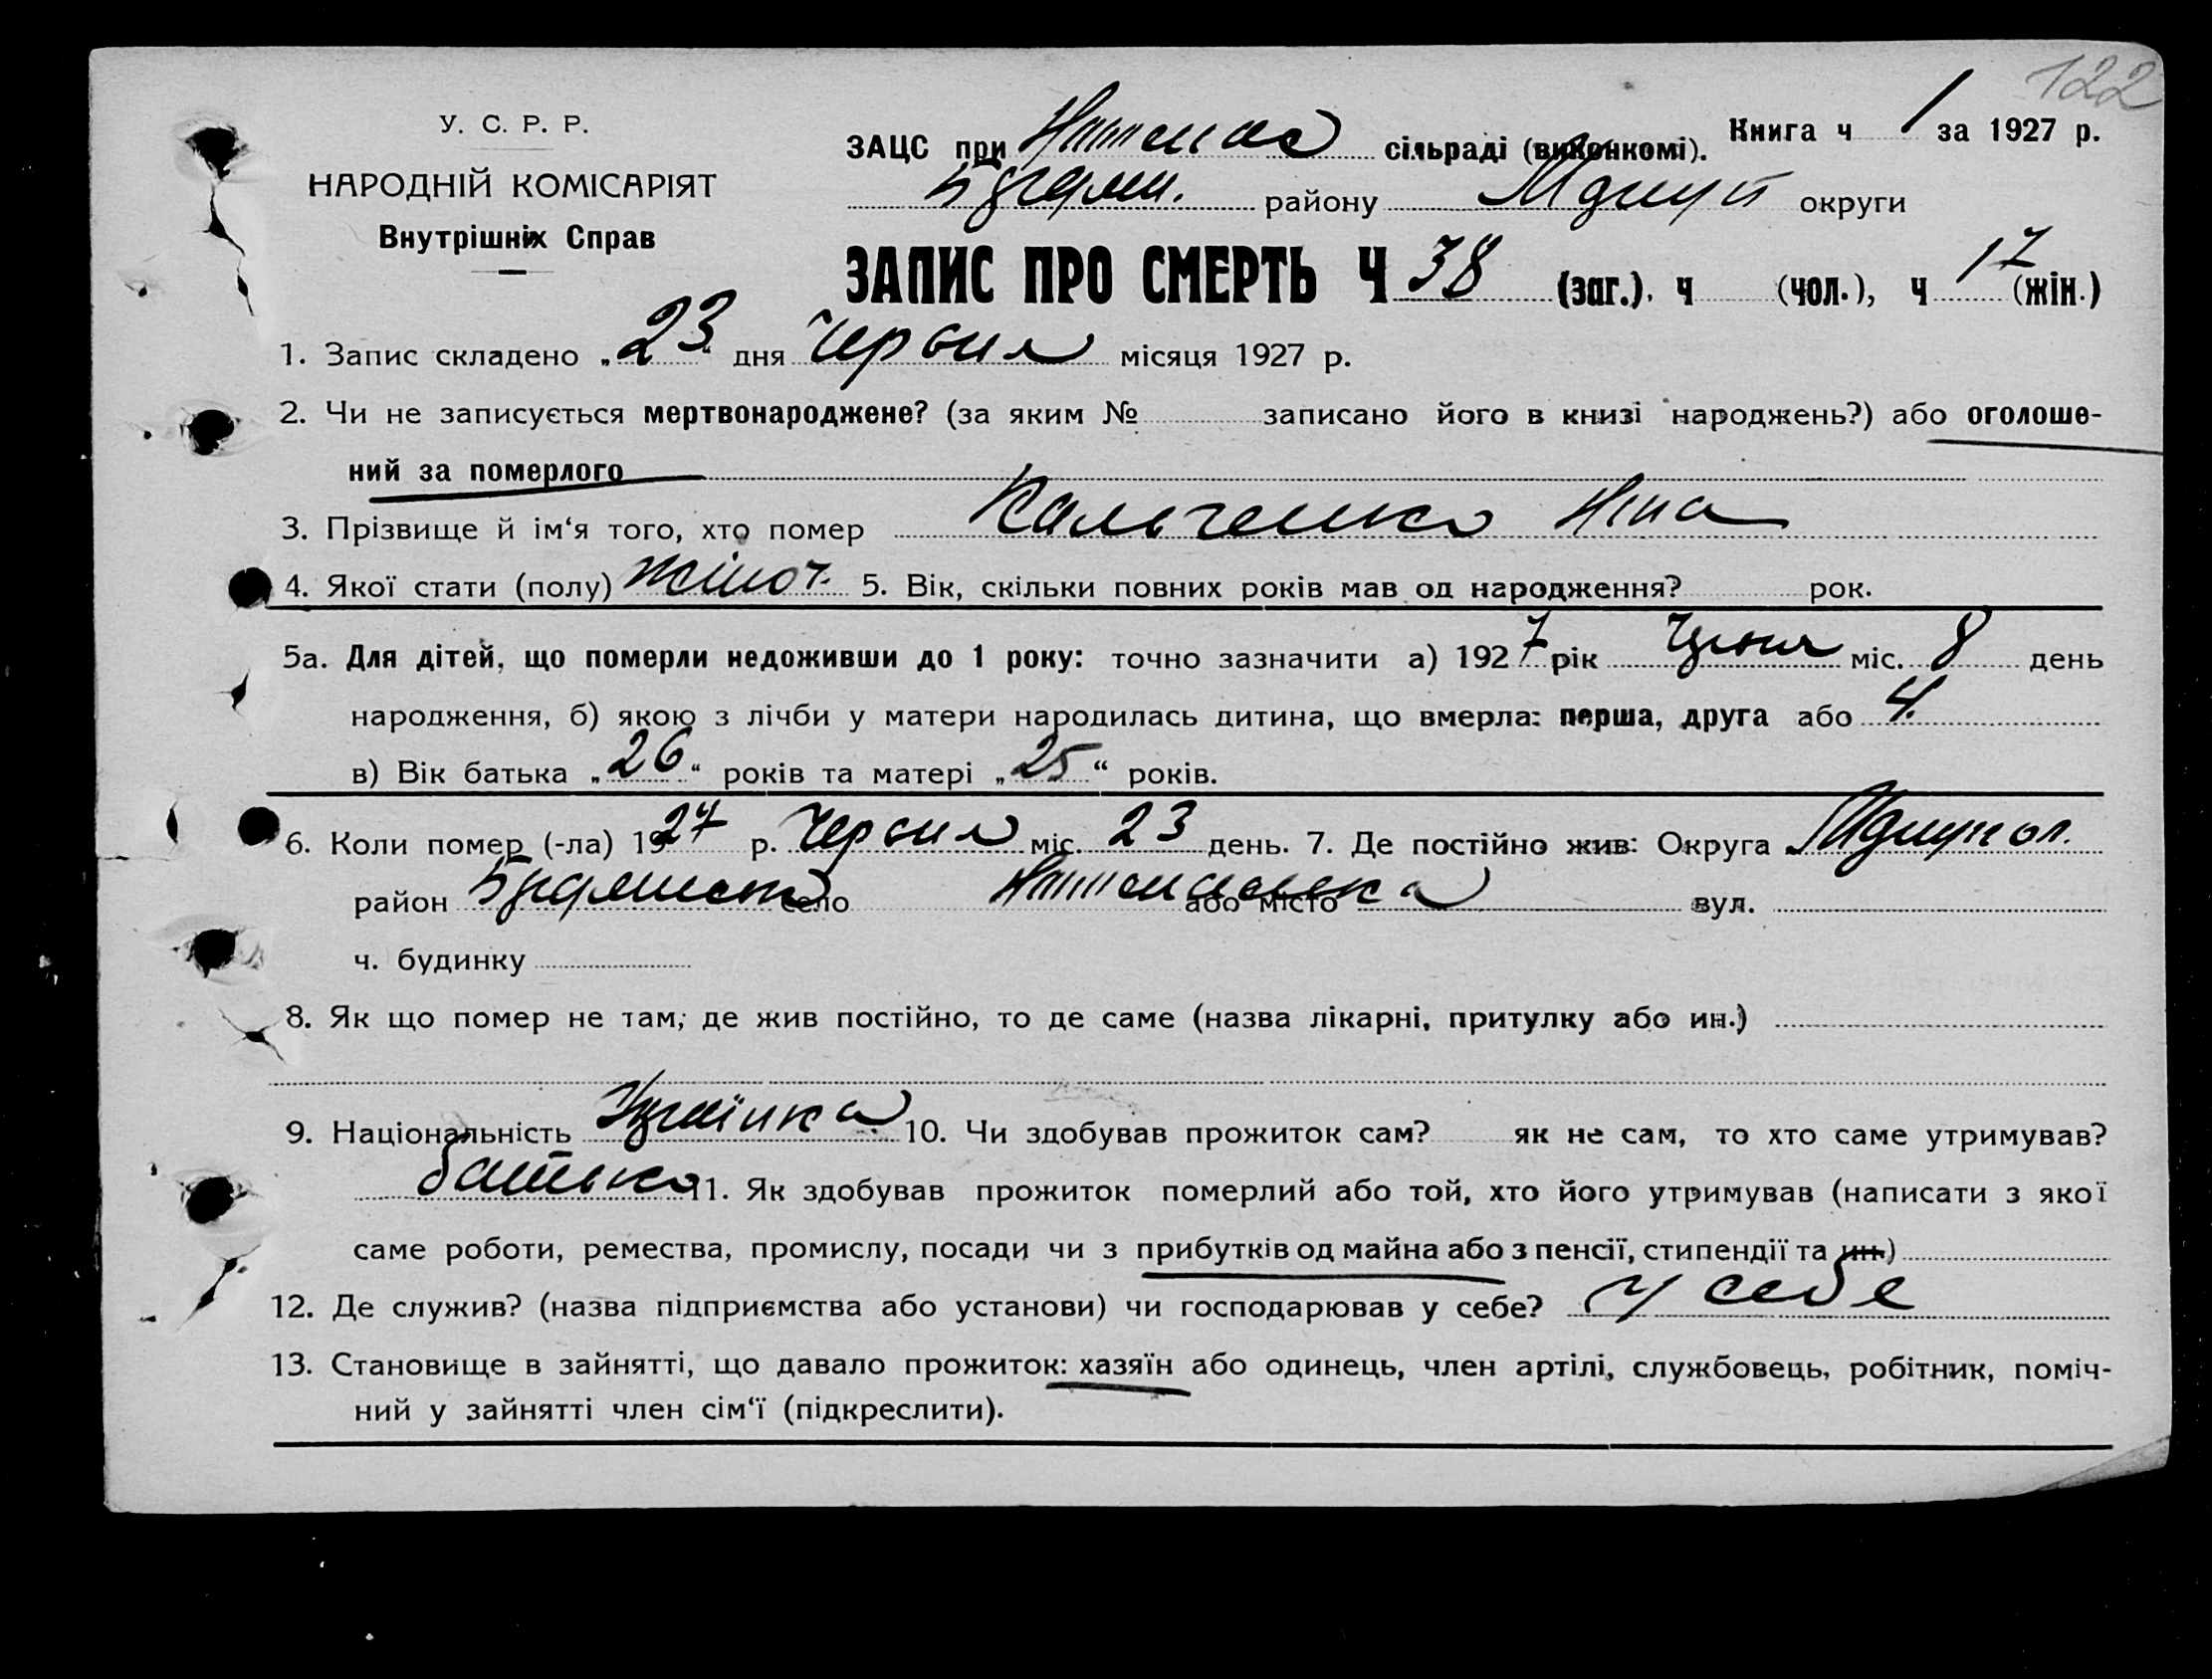 122
У. С. Р. Р.
НАРОДНІЙ КОМІСАРІЯТ
Внутрішніх Справ
ЗАЦС при сільраді (виконкомі). Книга ч 1 за 1927 р.
району округи
ЗАПИС ПРО СМЕРТЬ Ч 38 (заг.). ч (чол.), ч 17 (жін.)
1. Запис складено „23“ дня Червня місяця 1927 р.
2. Чи не записується мертвонароджене? (за яким № записано його в книзі народжень?) або оголоше-
ний за померлого
3. Прізвище й ім‘я того, хто помер Кальченко Ніна
4. Якої стати (полу) жіноч. 5. Вік, скільки повних років мав од народження? рок.
5а. Для дітей, що померли недоживши до 1 року: точно зазначити а) 1927 рік міс. 8 день
народження, б) якою з лічби у матери народилась дитина, що вмерла: перша, друга або 4.
в) Вік батька „26“ років та матері „25“ років.
6. Коли помер (-ла) 1927 р. Червня міс. 23 день. 7. Де постійно жив: Округа
район село або місто вул.
ч. будинку
8. Як що помер не там, де жив постійно, то де саме (назва лікарні, притулку або ин.)
9. Національність Українка 10. Чи здобував прожиток сам? як не сам, то хто саме утримував?
батько 11. Як здобував прожиток померлий або той, хто його утримував (написати з якої
саме роботи, ремества, промислу, посади чи з прибутків од майна або з пенсії, стипендії та ин.)
12. Де служив? (назва підприємства або установи) чи господарював у себе? у себе
13. Становище в зайнятті, що давало прожиток: хазяїн або одинець, член артілі, службовець, робітник, поміч-
ний у зайнятті член сім‘ї (підкреслити).